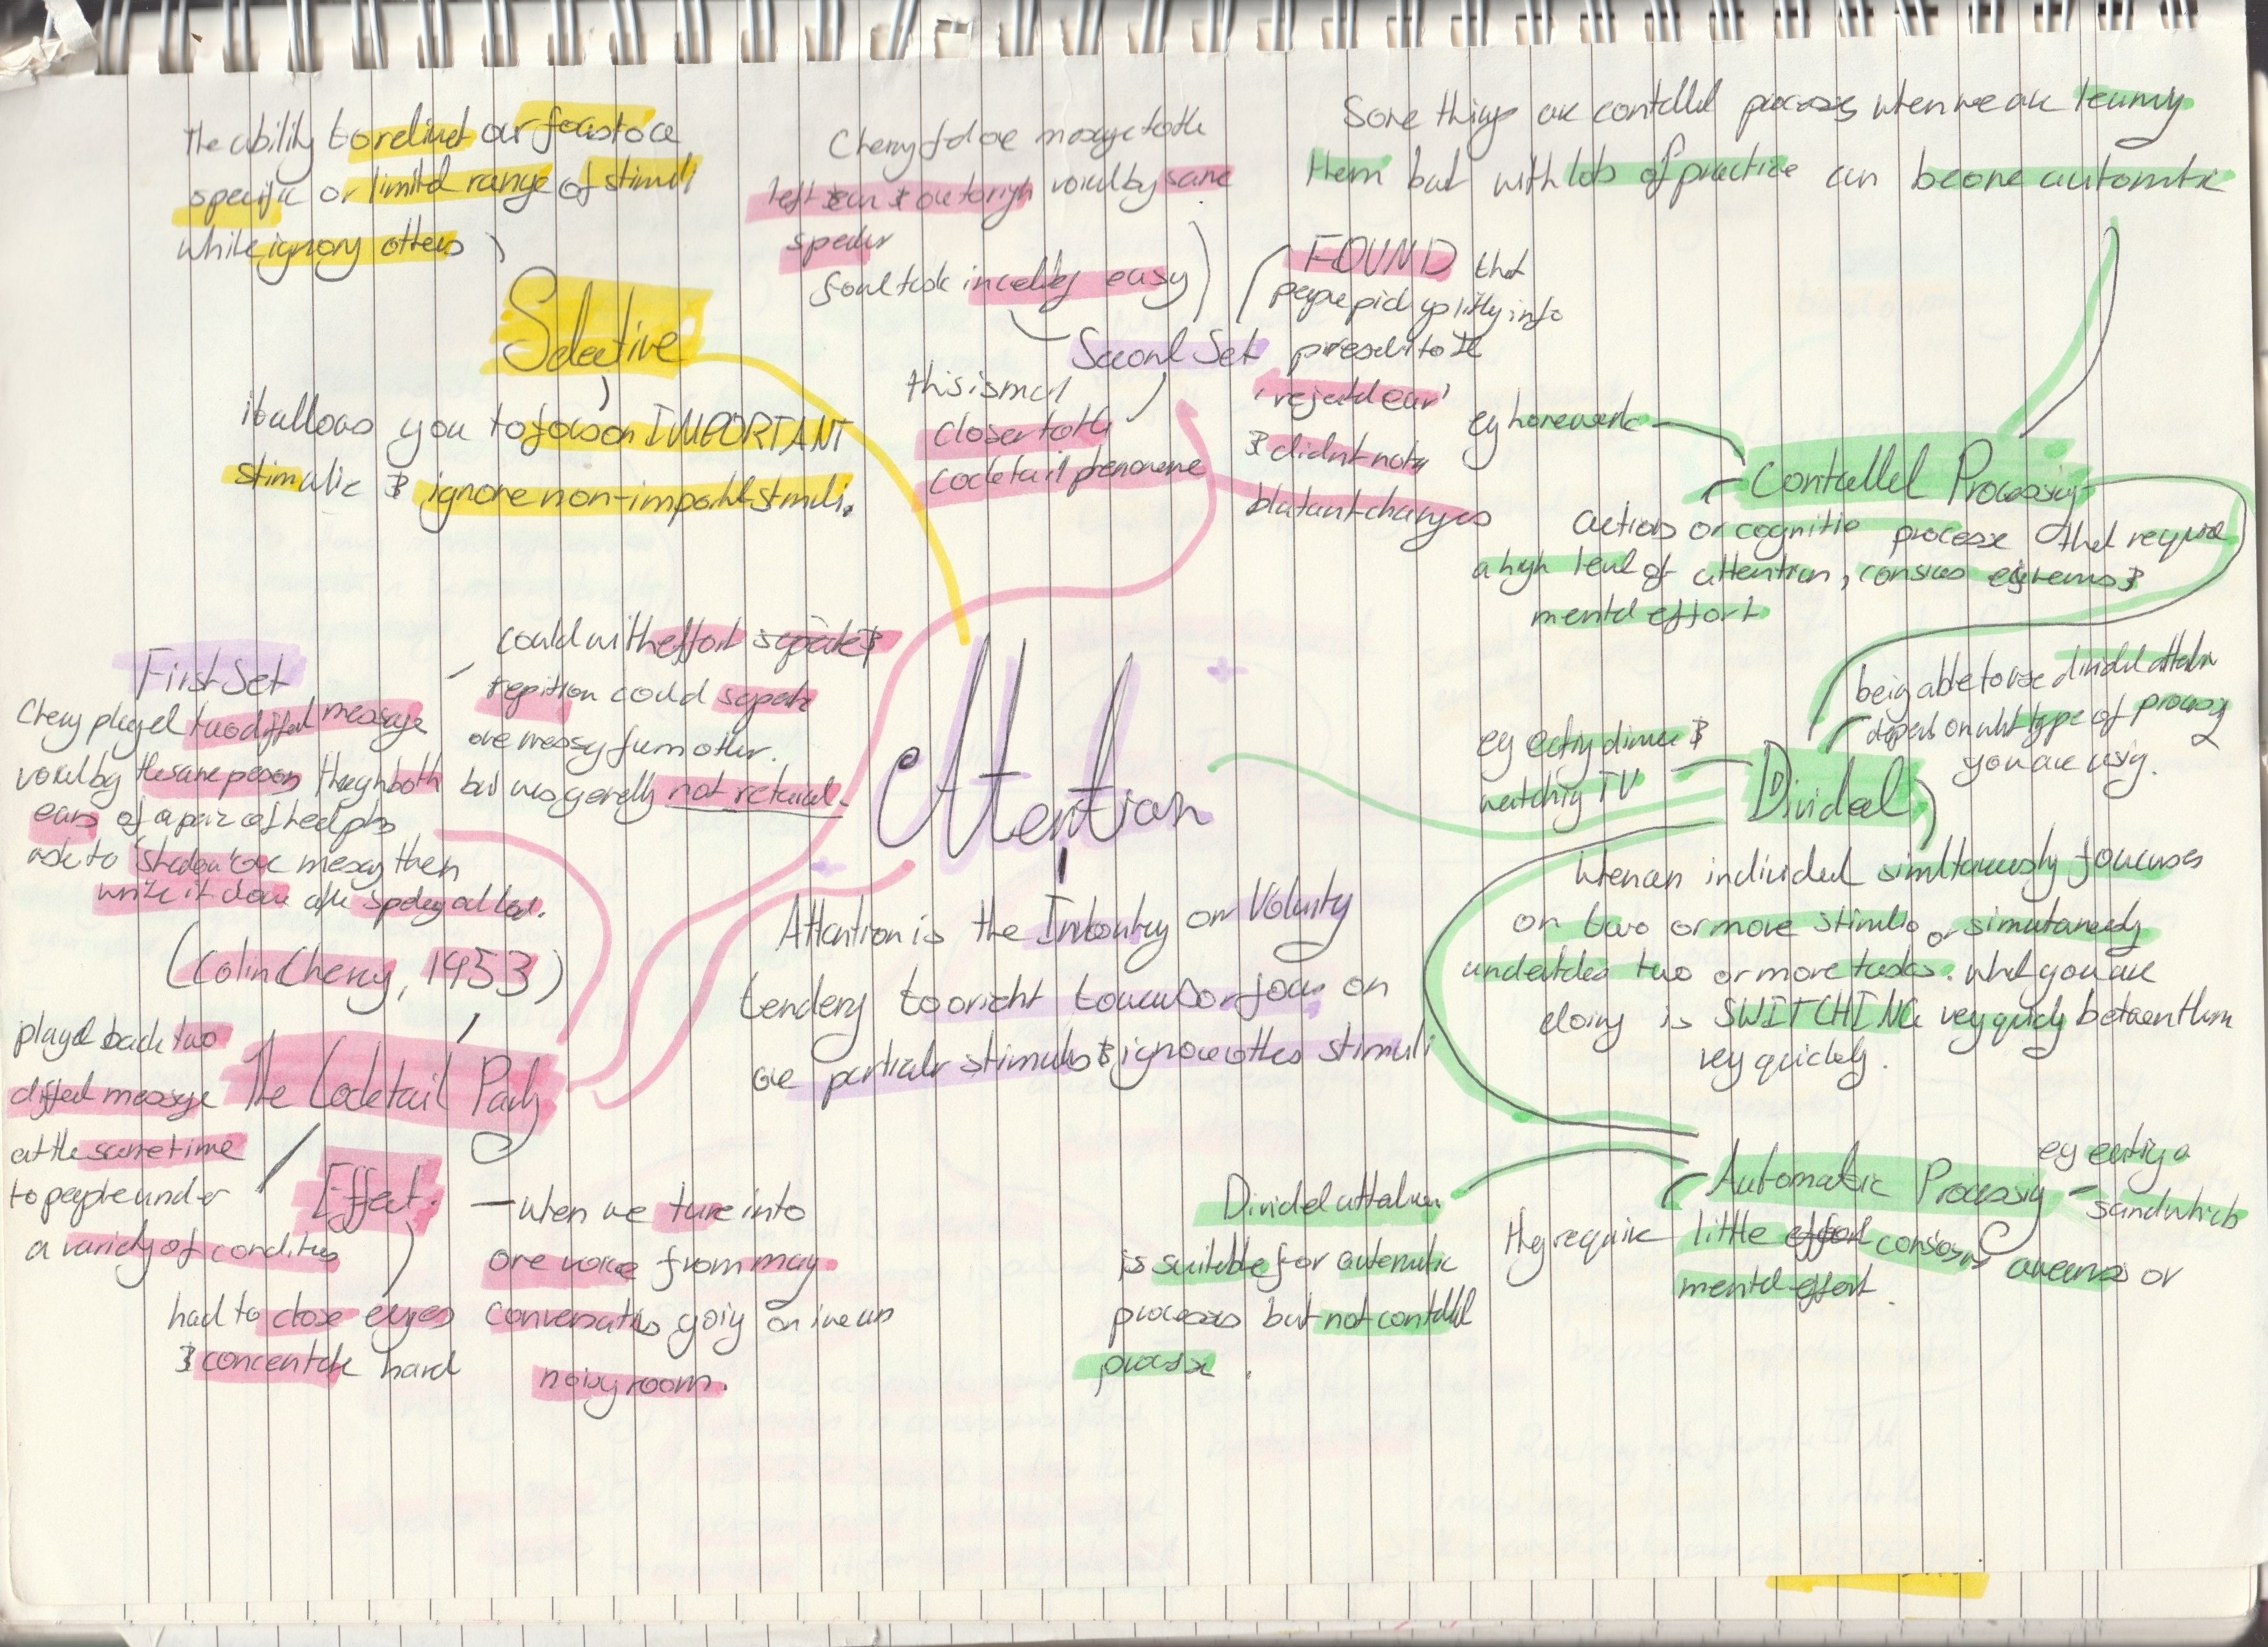 The ability to redirect our focus to a
specific or limited range of stimuli
while ignory others
Selective
it allows you to focus on IMPORTANT
stimulie & ignore non-important stimuli.
Cherry fed one message to the
left ear & one to righ voiced by same
speaker
found task incredibly easy
Second Set
this is much
closer to the
cocktail phenomene
FOUND that
people pick up little info
presented to the
'rejected ear'
& didnt notice
blatant changes
Some things are controlled processes when we are learning
them but with lots of practice can become automatic
eg homework
Controlled Processing
actions or cognitive processe that require
a high level of attention, consious &
mental effort
First Set
Cherry played two different message
voiced by the same person through both
ears of a pair of headphones
ask to 'shadow' one message then
write it down after speaking out loud.
could with effort seperate &
repition could seperate
one message from other.
but was generally not retained.
(Colin Cherry, 1953)
The Cocktail Party
Effect.
played back two
different message
at the same time
to people under
a variety of conditions
had to close eyes
& concentrate hard
- when we tune into
one voice from many
conversations going on in
noisy room.
Attention
Attention is the Involuntary or Voluntary
tendency to orient towards or focus on
one particular stimulus & ignore other stimuli
being able to use divided attention
depends on what type of processing
you are using.
eg eating dinner &
watching TV
Divided
When an individual simultaneously foucuses
on two or more stimulie or simultaneously
undertakes two or more tasks. What you are
doing is SWITCHING very quickly between them
very quickly.
Automatic Processing
eg eating a
sandwhich
they require little effort consious awareness or
mental effort.
Divided attention
is suitable for automatic
processes but not controlled
processe.